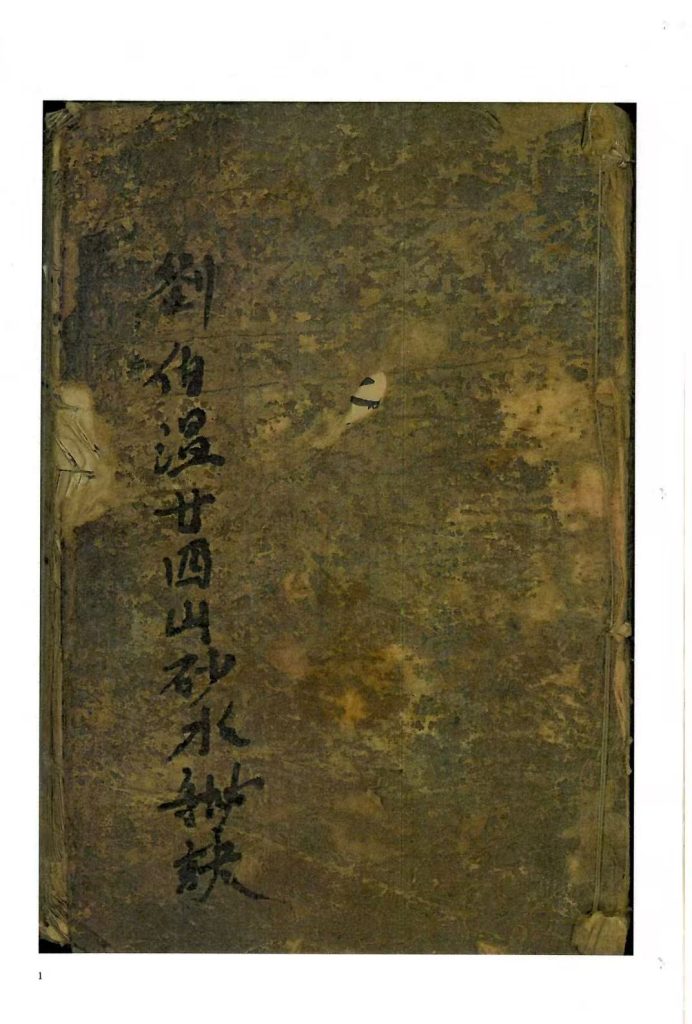 劉伯温廿四山砂水秘訣
1